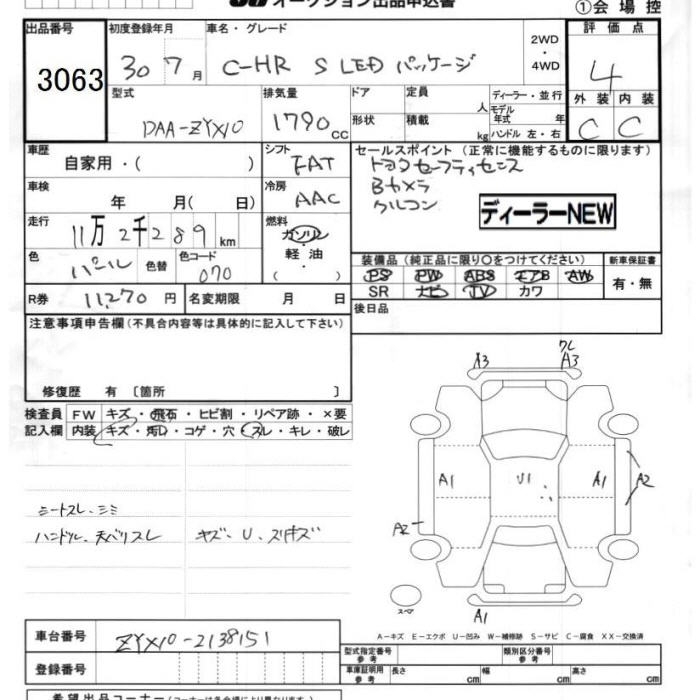 オークション出品申込書
①会場控
出品番号 初度登録年月 車名・グレード 2WD・4WD 評価点
3063 30 7月 C-HR S LED パッケージ 4
型式 排気量 ドア 定員 人 ディーラー・並行 外装 内装
DAA-ZYX10 1790cc 形状 積載 kg モデル年式 年 ハンドル 左・右 C C
車歴 自家用・( ) シフト FAT セールスポイント (正常に機能するものに限ります)
トヨタセーフティセンス
Bカメラ
クルコン
ディーラーNEW
車検 年 月( 日) 冷房 AAC
走行 11万2千289km 燃料 ガソリン・軽油・( )
色 パール 色替 色コード 070
装備品 (純正品に限り○をつけてください) 新車保証書
PS PW ABS エアB AW 有・無
SR ナビ TV カワ
R券 11,270円 名変期限 月 日
後日品
注意事項申告欄(不具合内容等は具体的に記入して下さい)
修復歴 有 〔箇所 〕
検査員記入欄 FW キズ・飛石・ヒビ割・リペア跡・×要
内装 キズ・汚レ・コゲ・穴・スレ・キレ・破レ
シートスレ、シミ
ハンドル、天バリスレ キズ、U、スリキズ
A3 ワレ A3
A1 U1 A1 A2
A2
A1
スペア
A-キズ E-エクボ U-凹み W-補修跡 S-サビ C-腐食 XX-交換済
車台番号 ZYX10-2138151
型式指定番号 参考 類別区分番号 参考
登録番号
車庫証明用 参考 長さ cm 幅 cm 高さ cm
希望出品コーナー